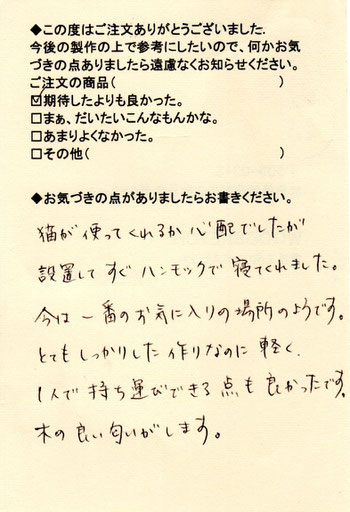 ◆この度はご注文ありがとうございました.
今後の製作の上で参考にしたいので、何かお気
づきの点ありましたら遠慮なくお知らせください。
ご注文の商品(　　　　　　　　　　　　)
☑期待したよりも良かった。
□まぁ、だいたいこんなもんかな。
□あまりよくなかった。
□その他(　　　　　　　　　　　　　　)
◆お気づきの点がありましたらお書きください。
猫が使ってくれるか心配でしたが
設置してすぐハンモックで寝てくれました。
今は一番のお気に入りの場所のようです。
とてもしっかりした作りなのに軽く、
1人で持ち運びできる点も良かったです。
木の良い匂いがします。